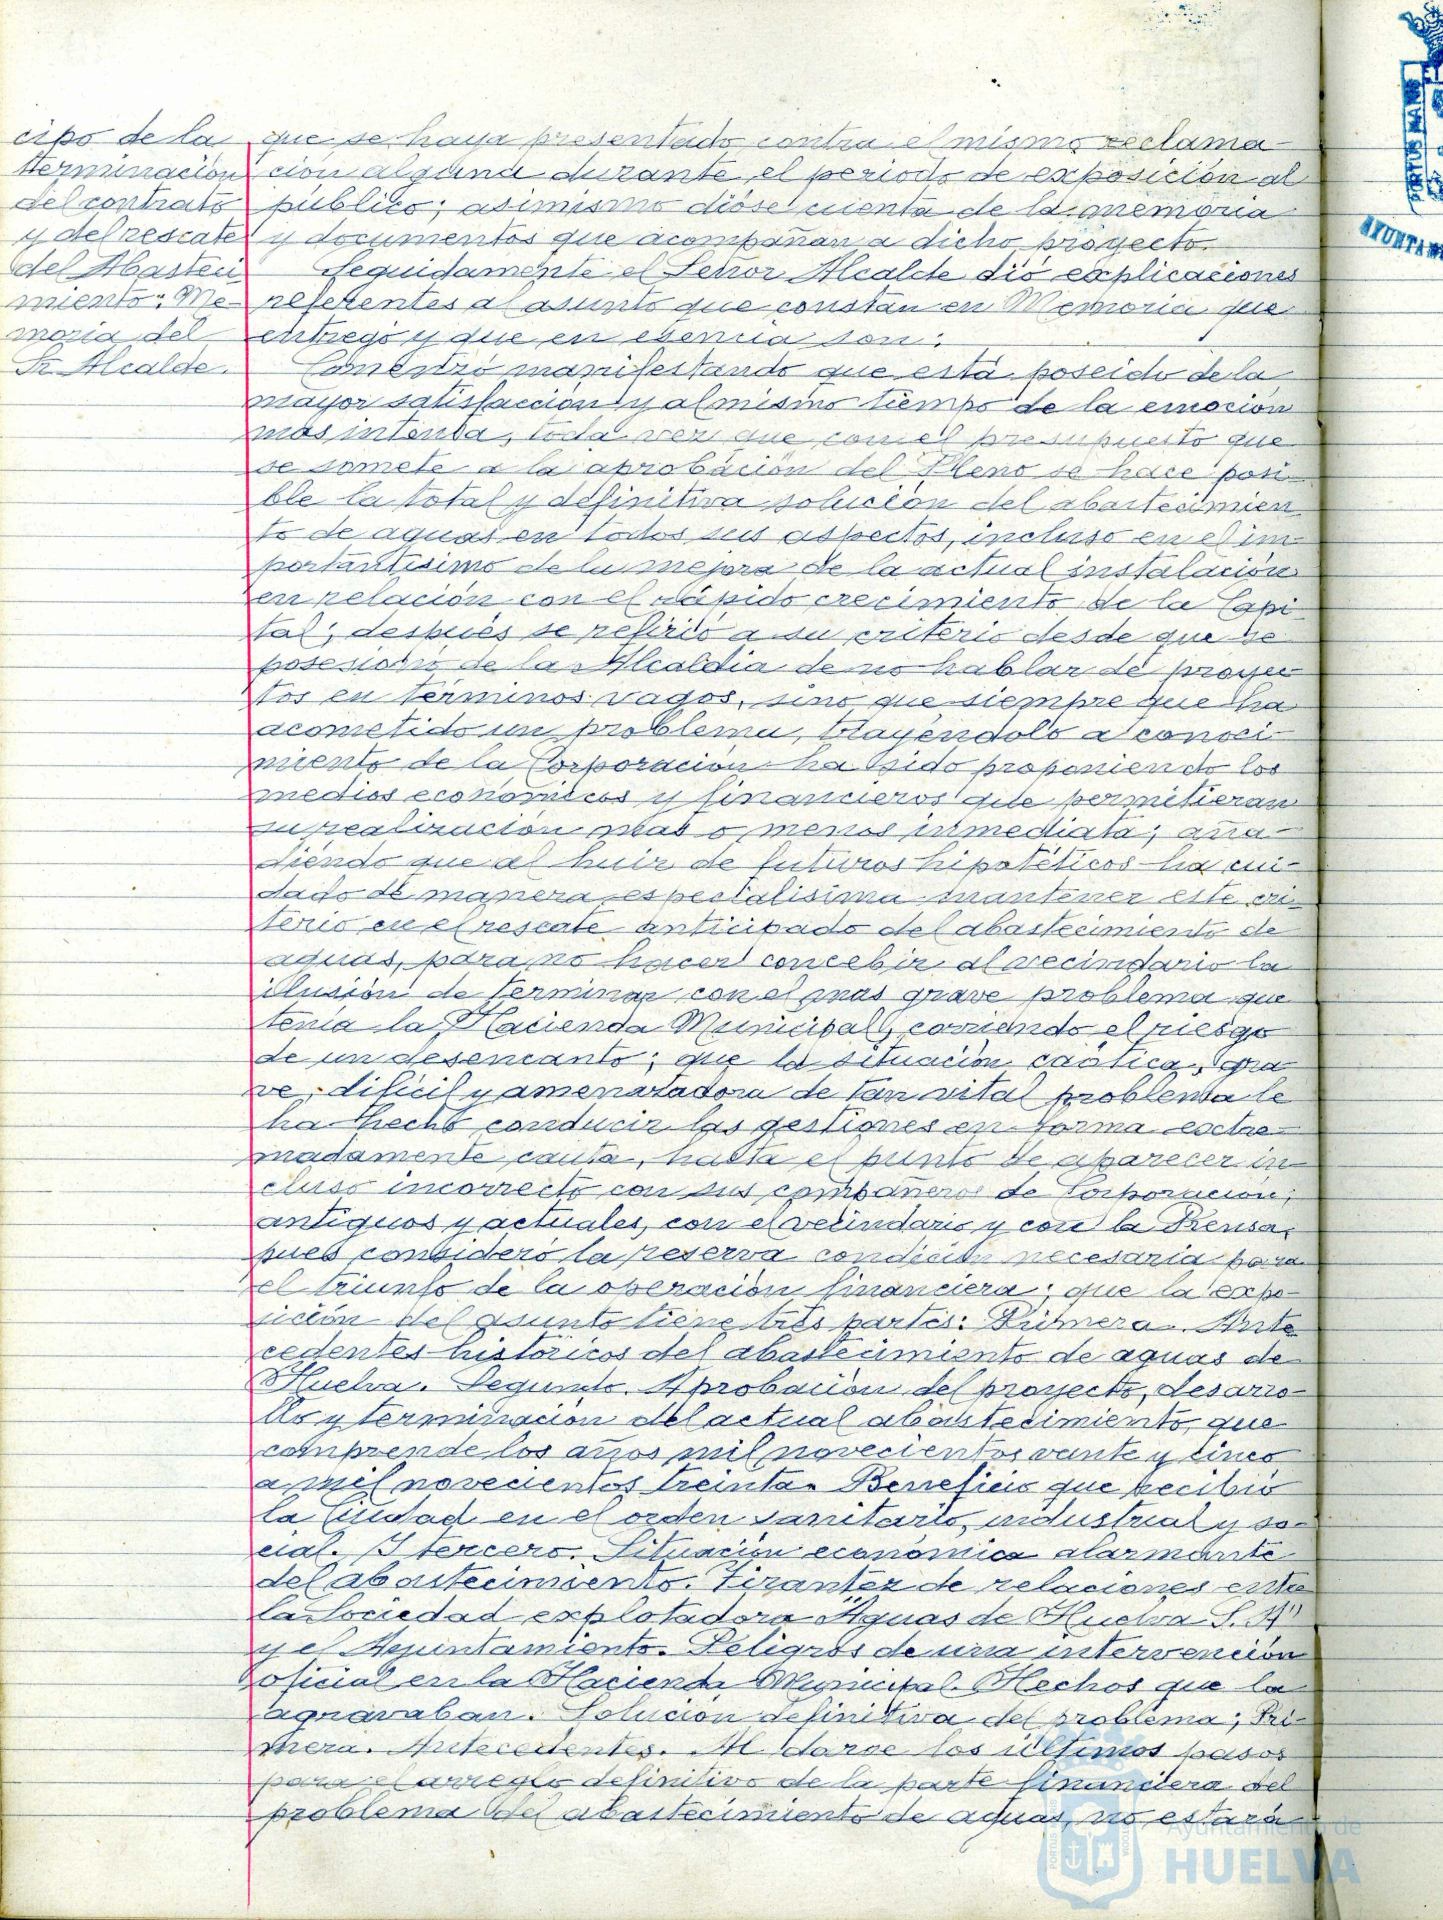 cipo de la
terminación
del contrato
y del rescate
del Abasteci
miento: Me-
moria del
Sr. Alcalde.
que se haya presentado contra el mismo reclama-
ción alguna durante el periodo de exposición al
público; asimismo dióse cuenta de la memoria
y documentos que acompañan a dicho proyecto.
Seguidamente el Señor Alcalde dió explicaciones
referentes al asunto que constan en Memoria que
entregó y que en esencia son:
Comenzó manifestando que está poseido de la
mayor satisfacción y al mismo tiempo de la emoción
mas intensa, toda vez que con el presupuesto que
se somete a la aprobación del Pleno se hace posi-
ble la total y definitiva solución del abastecimien
to de aguas en todos sus aspectos, incluso en el im-
portantisimo de la mejora de la actual instalación
en relación con el rápido crecimiento de la Capi-
tal; después se refirió a su criterio desde que se
posesionó de la Alcaldia de no hablar de proyec-
tos en términos vagos, sino que siempre que ha
acometido un problema, trayéndolo a conoci-
miento de la Corporación ha sido proponiendo los
medios económicos y financieros que permitieran
su realización mas o menos inmediata; aña-
diendo que al huir de futuros hipotéticos ha cui-
dado de manera especialisima mantener este cri-
terio en el rescate anticipado del abastecimiento de
aguas, para no hacer concebir al vecindario la
ilusión de terminar con el mas grave problema que
tenia la Hacienda Municipal, corriendo el riesgo
de un desencanto; que la situación caótica, gra-
ve, dificil y amenazadora de tan vital problema le
ha hecho conducir las gestiones en forma extre-
madamente cauta, hasta el punto de aparecer in-
cluso incorrecto con sus compañeros de Corporación,
antiguos y actuales, con el vecindario y con la Prensa,
pues consideró la reserva condición necesaria para
el triunfo de la operación financiera; que la expo-
sición del asunto tiene tres partes: Primera. Ante
cedentes históricos del abastecimiento de aguas de
Huelva. Segundo. Aprobación del proyecto, desarro-
llo y terminación del actual abastecimiento, que
comprende los años mil novecientos vente y cinco
a mil novecientos treinta. Beneficio que recibió
la Ciudad en el orden sanitario, industrial y so-
cial. Y tercero. Situación económica alarmante
del abastecimiento. Tirantez de relaciones entre
la Sociedad explotadora "Aguas de Huelva S. A"
y el Ayuntamiento. Peligros de una intervención
oficial en la Hacienda Municipal. Hechos que la
agravaban. Solución definitiva del problema; Pri-
mera. Antecedentes. Al darse los últimos pasos
para el arreglo definitivo de la parte financiera del
problema del abastecimiento de aguas, no estará
PORTUS MARIS
AYUNTA
Ayuntamiento de
HUELVA